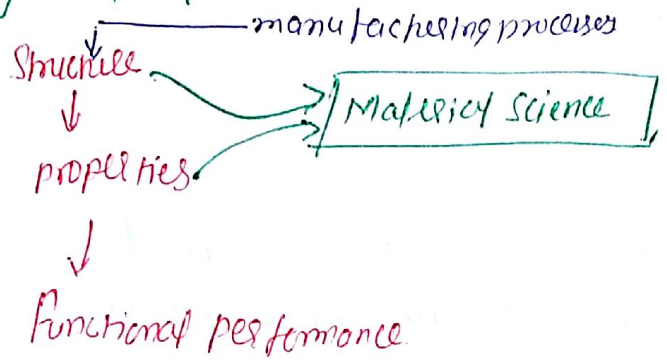 manufacturing processes
Structure
Material Science
properties
Functional performance